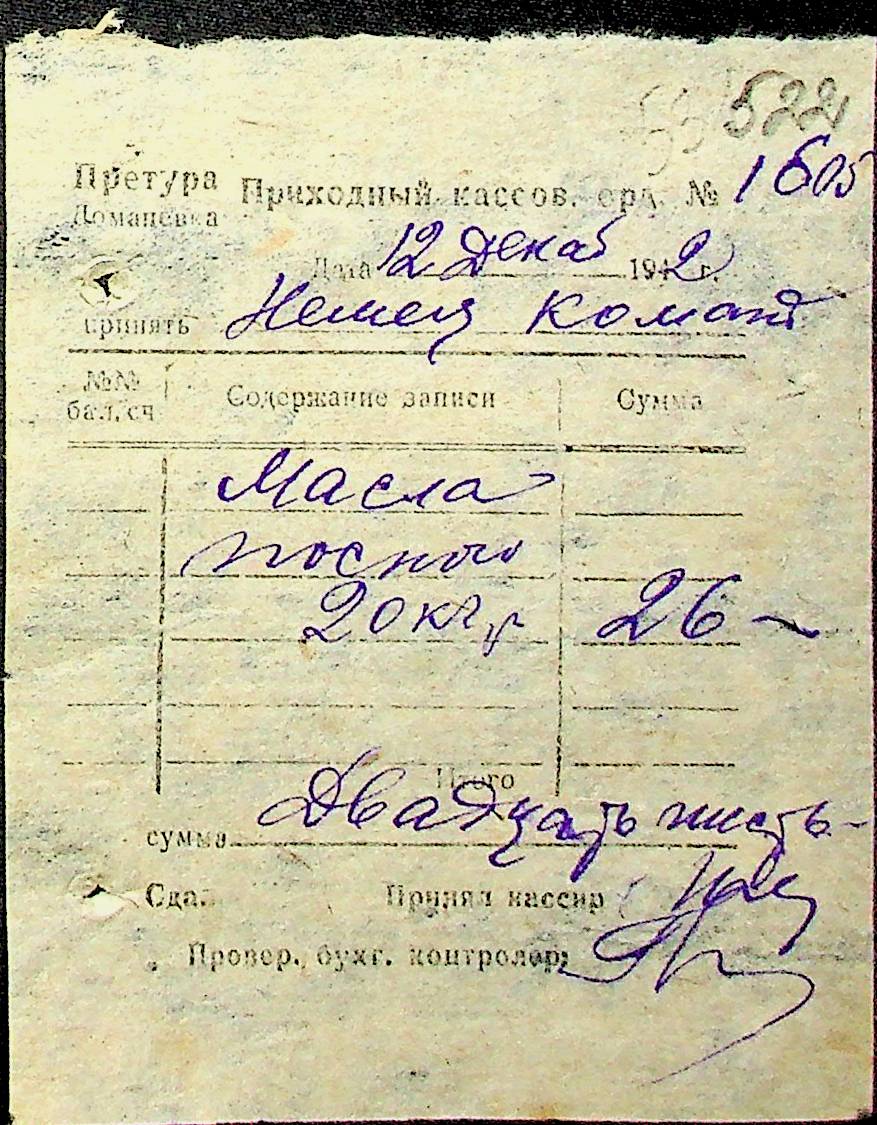 522
Претура Приходный кассов. орд. № 1605
Доманевка
Дата 12 Декаб 1942 г.
принять Немец команд
№№ бал. сч Содержание записи Сумма
Масла
постного
20 кгр 26 ~
Итого
сумма Двадцать шесть
Сдал Принял кассир
Провер. бухг. контролер